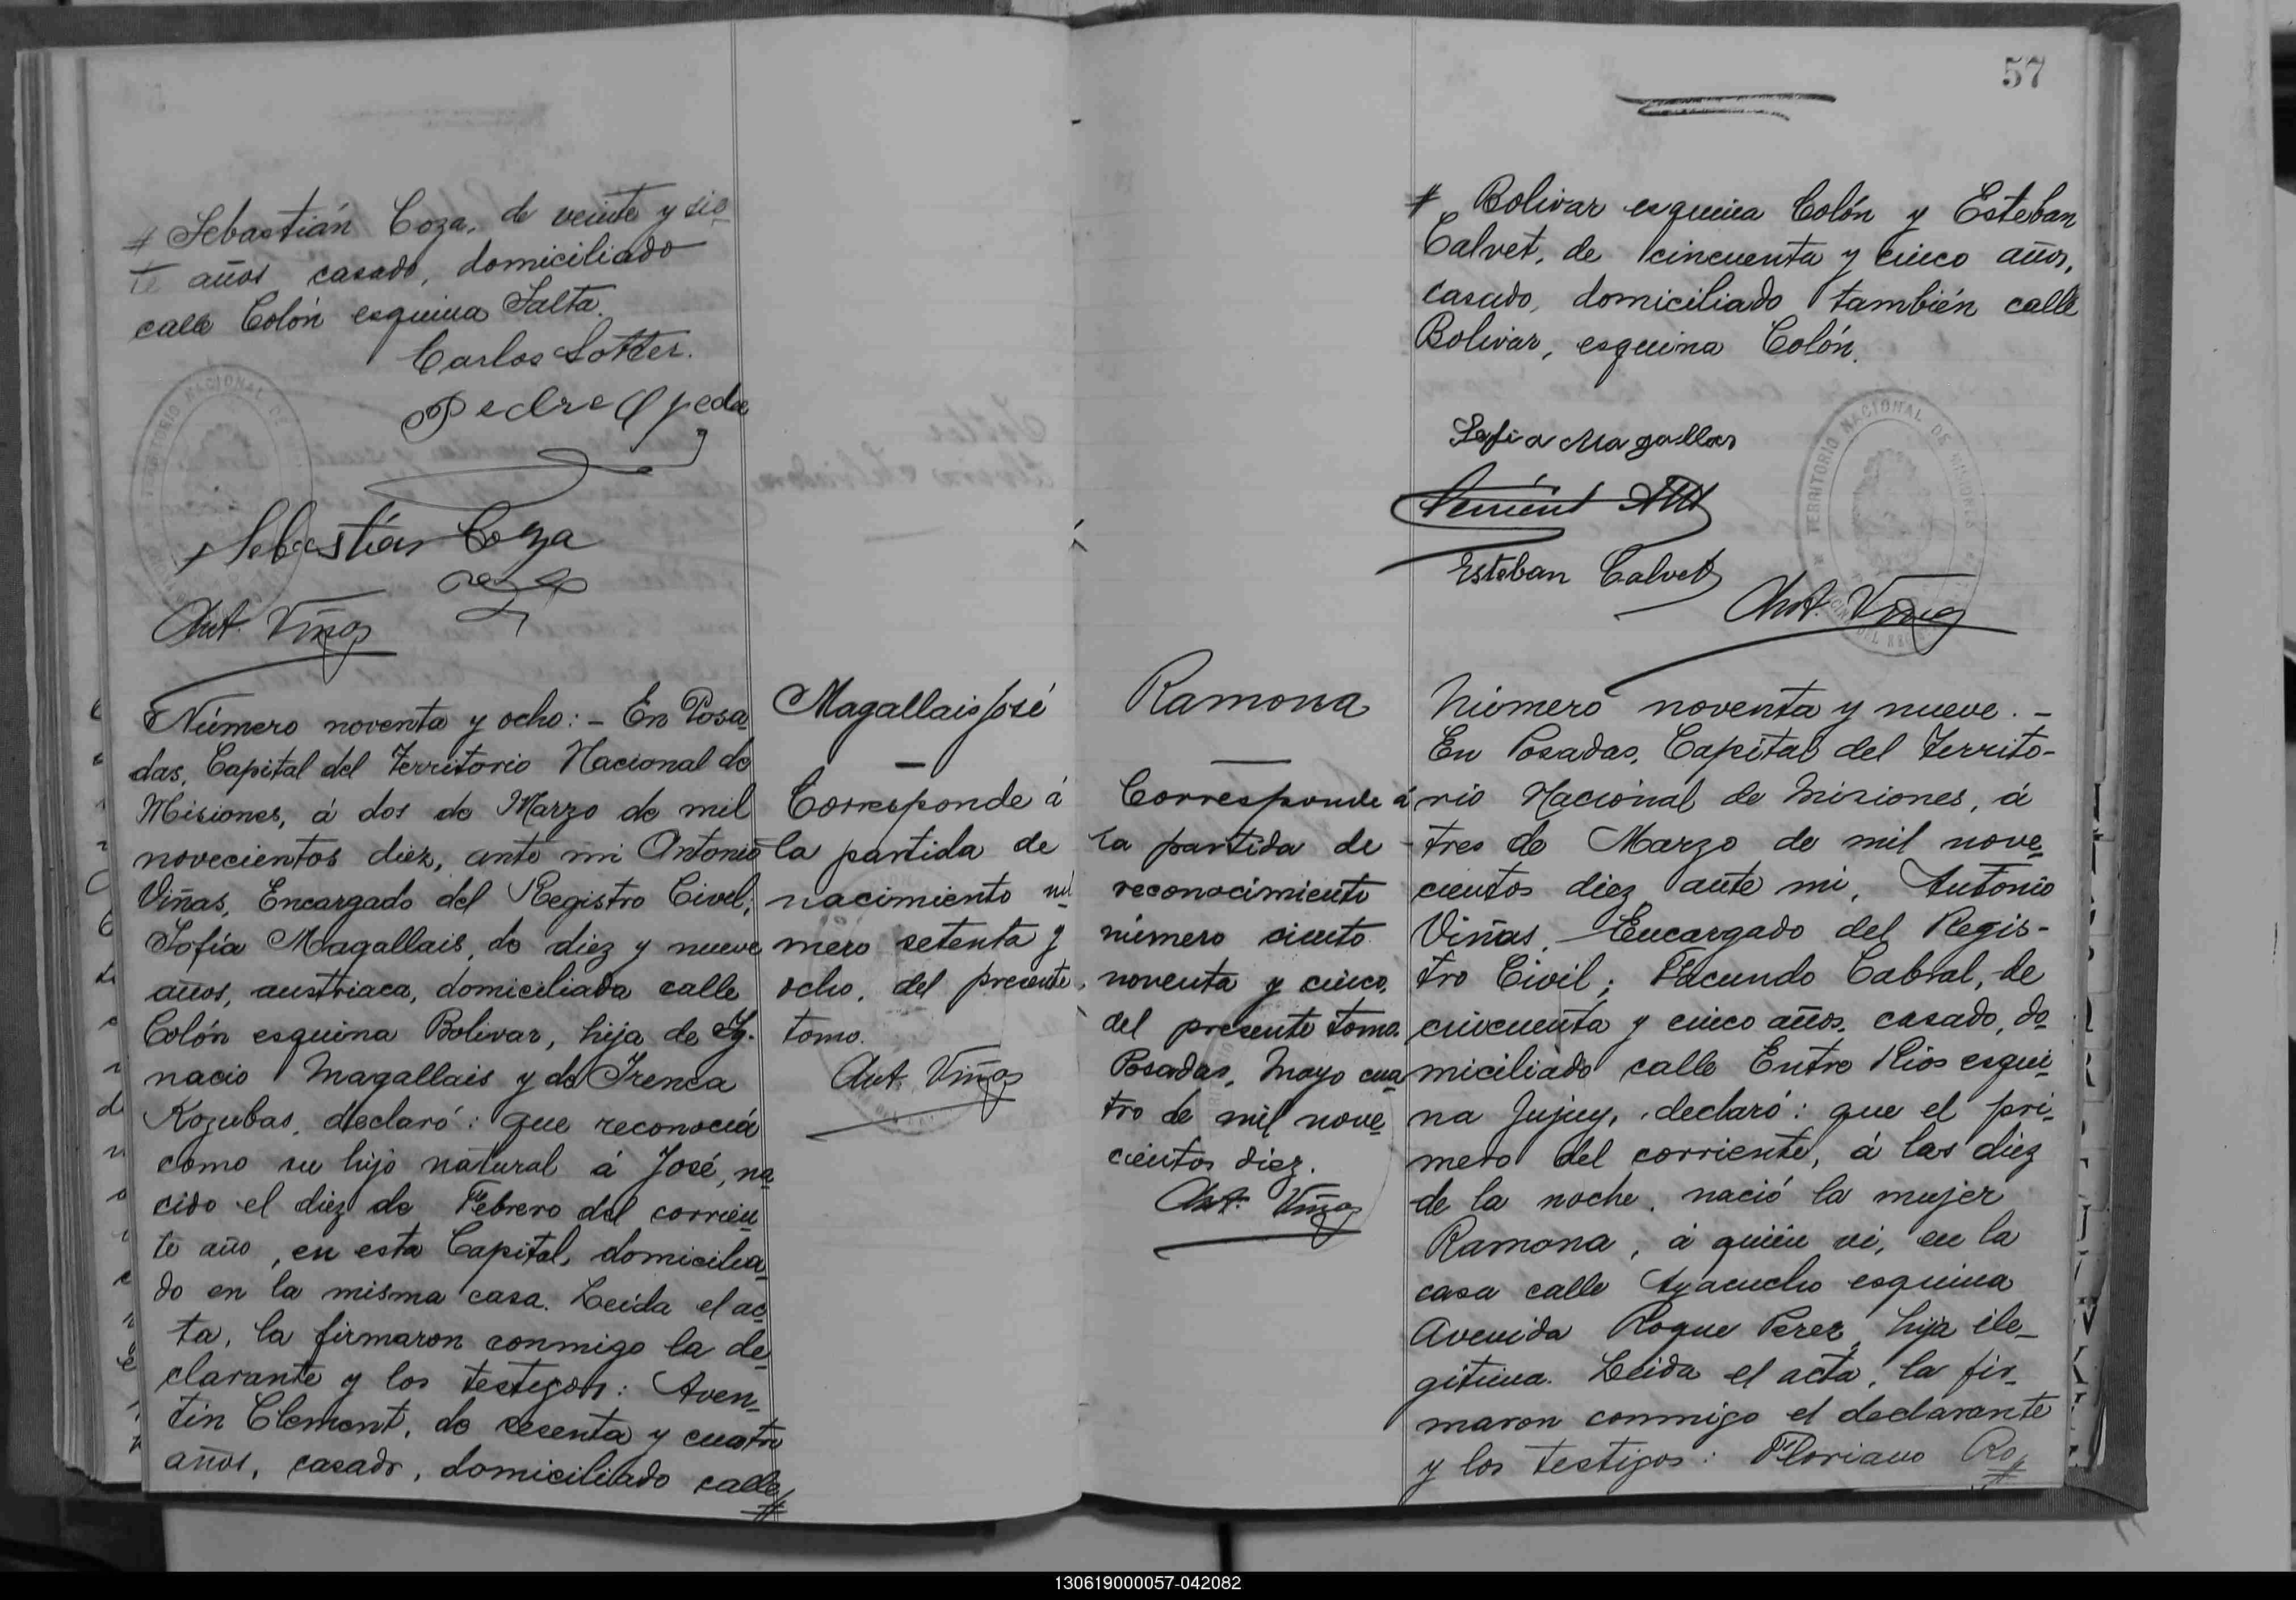 # Sebastián Coza, de veinte y sie-
te años casado, domiciliado
calle Colón esquina Salta.
Carlos Lotter.
Sebastián Coza
Ant. Viñas
Número noventa y ocho: - En Posa-
das, Capital del Territorio Nacional de
Misiones, á dos de Marzo de mil
novecientos diez, ante mi Antonio
Viñas, Encargado del Registro Civil;
Sofía Magallais, de diez y nueve
años, austriaca, domiciliada calle
Colón esquina Bolivar, hija de Ig-
nacio Magallais y de Irenea
Kozubas, declaró: que reconocía
como su hijo natural á José, na-
cido el diez de Febrero del corrien-
te año, en esta Capital, domicilia-
do en la misma casa. Leida el ac-
ta, la firmaron conmigo la de-
clarante y los testigos: Aven-
tin Clement, de sesenta y cuatro
años, casado, domiciliado calle
#
Magallais José
Corresponde á
la partida de
nacimiento nú-
mero setenta y
ocho, del presente
tomo.
Ant. Viñas
57
# Bolivar esquina Colón y Esteban
Calvet, de cincuenta y cinco años,
casado, domiciliado también calle
Bolivar, esquina Colón.
Sofia Magallais
Esteban Calvet
TERRITORIO NACIONAL DE MISIONES
Ant. Viñas
Ramona
Corresponde á
la partida de
reconocimiento
número ciento
noventa y cinco,
del presente tomo.
Posadas, Mayo cua-
tro de mil nove-
cientos diez.
Ant. Viñas
Número noventa y nueve. -
En Posadas, Capital del Territo-
rio Nacional de Misiones, á
tres de Marzo de mil nove-
cientos diez ante mi, Antonio
Viñas, Encargado del Regis-
tro Civil; Facundo Cabral, de
cincuenta y cinco años, casado, do-
miciliado calle Entre Rios esqui-
na Jujuy, declaró: que el pri-
mero del corriente, á las diez
de la noche, nació la mujer
Ramona, á quién vi, en la
casa calle Ayacucho esquina
Avenida Roque Perez, hija ile-
gitima. Leida el acta, la fir-
maron conmigo el declarante
y los testigos: Floriano Ro-
#
130619000057-042082